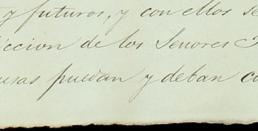 y futuros, y con ellos se
diccion de los Señores J
usas puedan y deban co